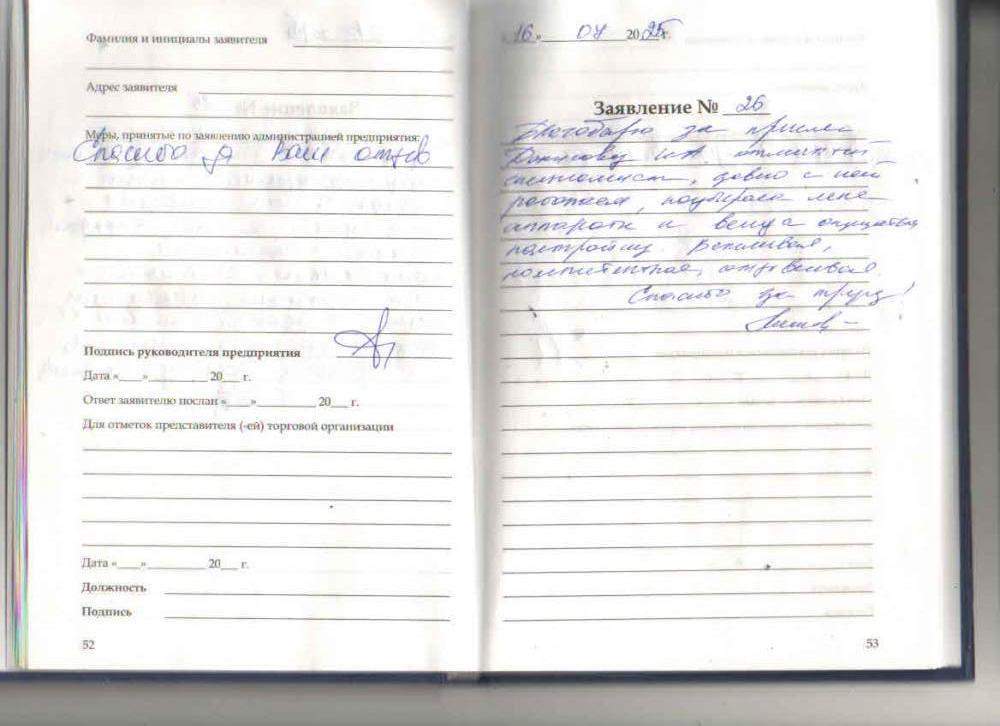 Фамилия и инициалы заявителя
Адрес заявителя
Меры, принятые по заявлению администрацией предприятия:
Спасибо за Ваш отзыв
Подпись руководителя предприятия
Дата «___»_________ 20___ г.
Ответ заявителю послан «___»_________ 20___ г.
Для отметок представителя (-ей) торговой организации
Дата «___»_________ 20___ г.
Должность
Подпись
52
16 » 04 2025 г.
Заявление № 26
Благодарю за прием
И.А. отличный
специалист, давно с ней
работаем, подбирала мне
аппараты и всегда
настройку. Вежливая,
компетентная, отзывчивая.
Спасибо за труд!
53